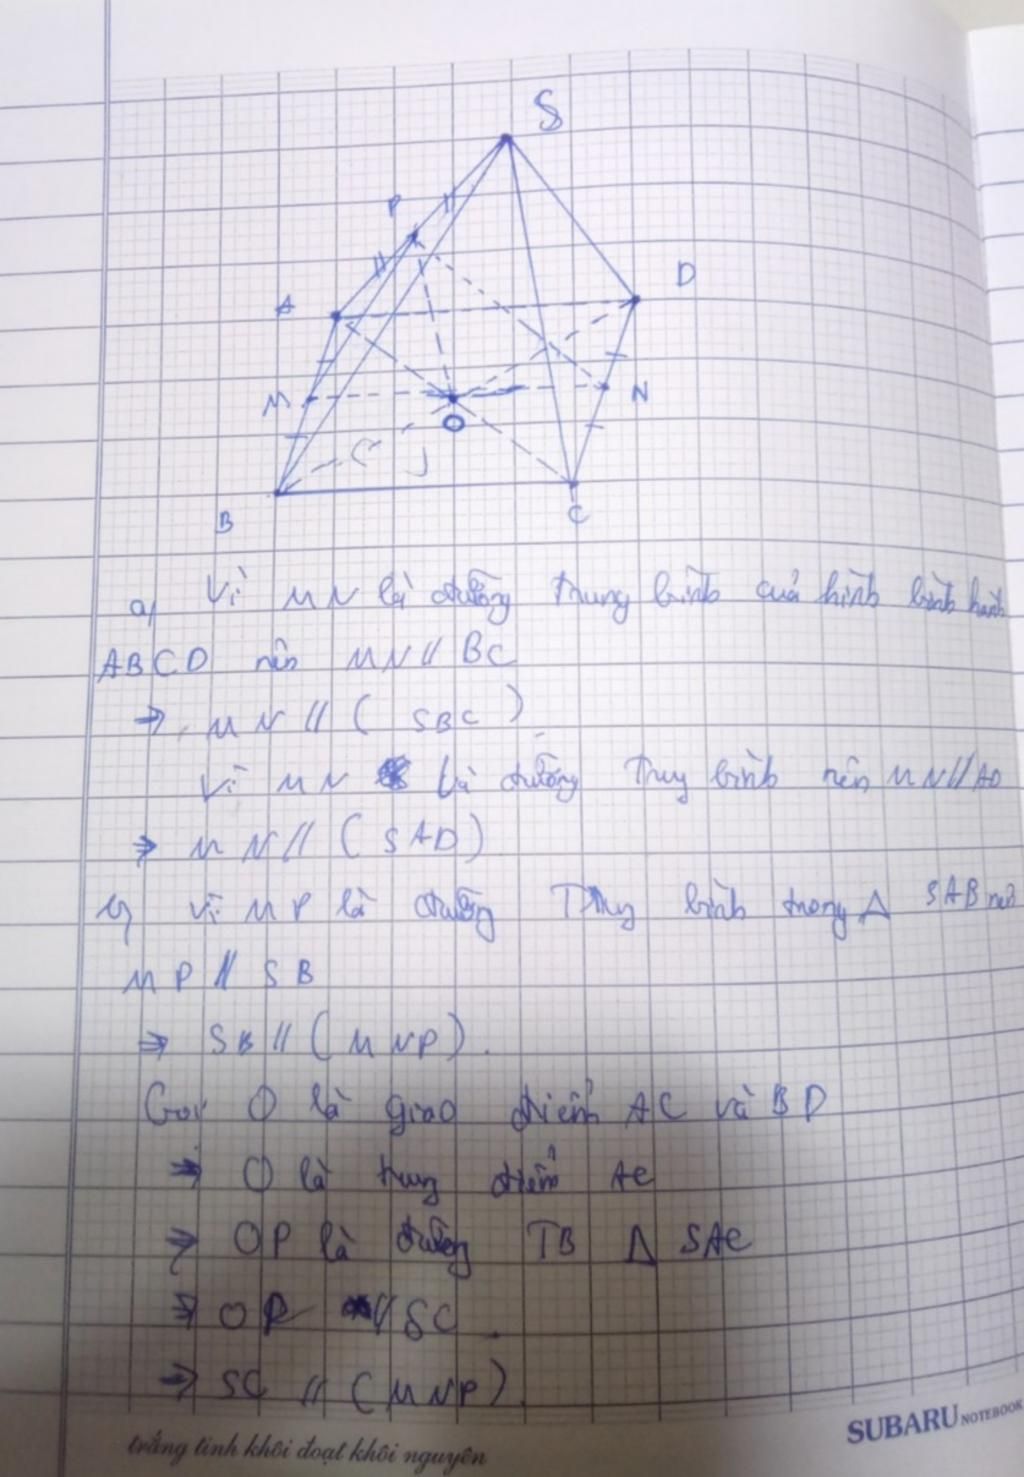 S
P
A
D
M
N
O
B
C
a, Vì MN là đường trung bình của hình bình hành
ABCD nên MN // BC
⇒ MN // ( SBC )
Vì MN là đường Trung bình nên MN // AD
⇒ MN // ( SAD )
b, Vì MP là đường Trung bình trong Δ SAB nên
MP // SB
⇒ SB // ( MNP ).
Gọi O là giao điểm AC và BD
⇒ O là trung điểm AC
⇒ OP là đường TB Δ SAC
⇒ OP // SC .
⇒ SC // ( MNP ).
SUBARU NOTEBOOK
trắng tinh khôi đoạt khôi nguyên